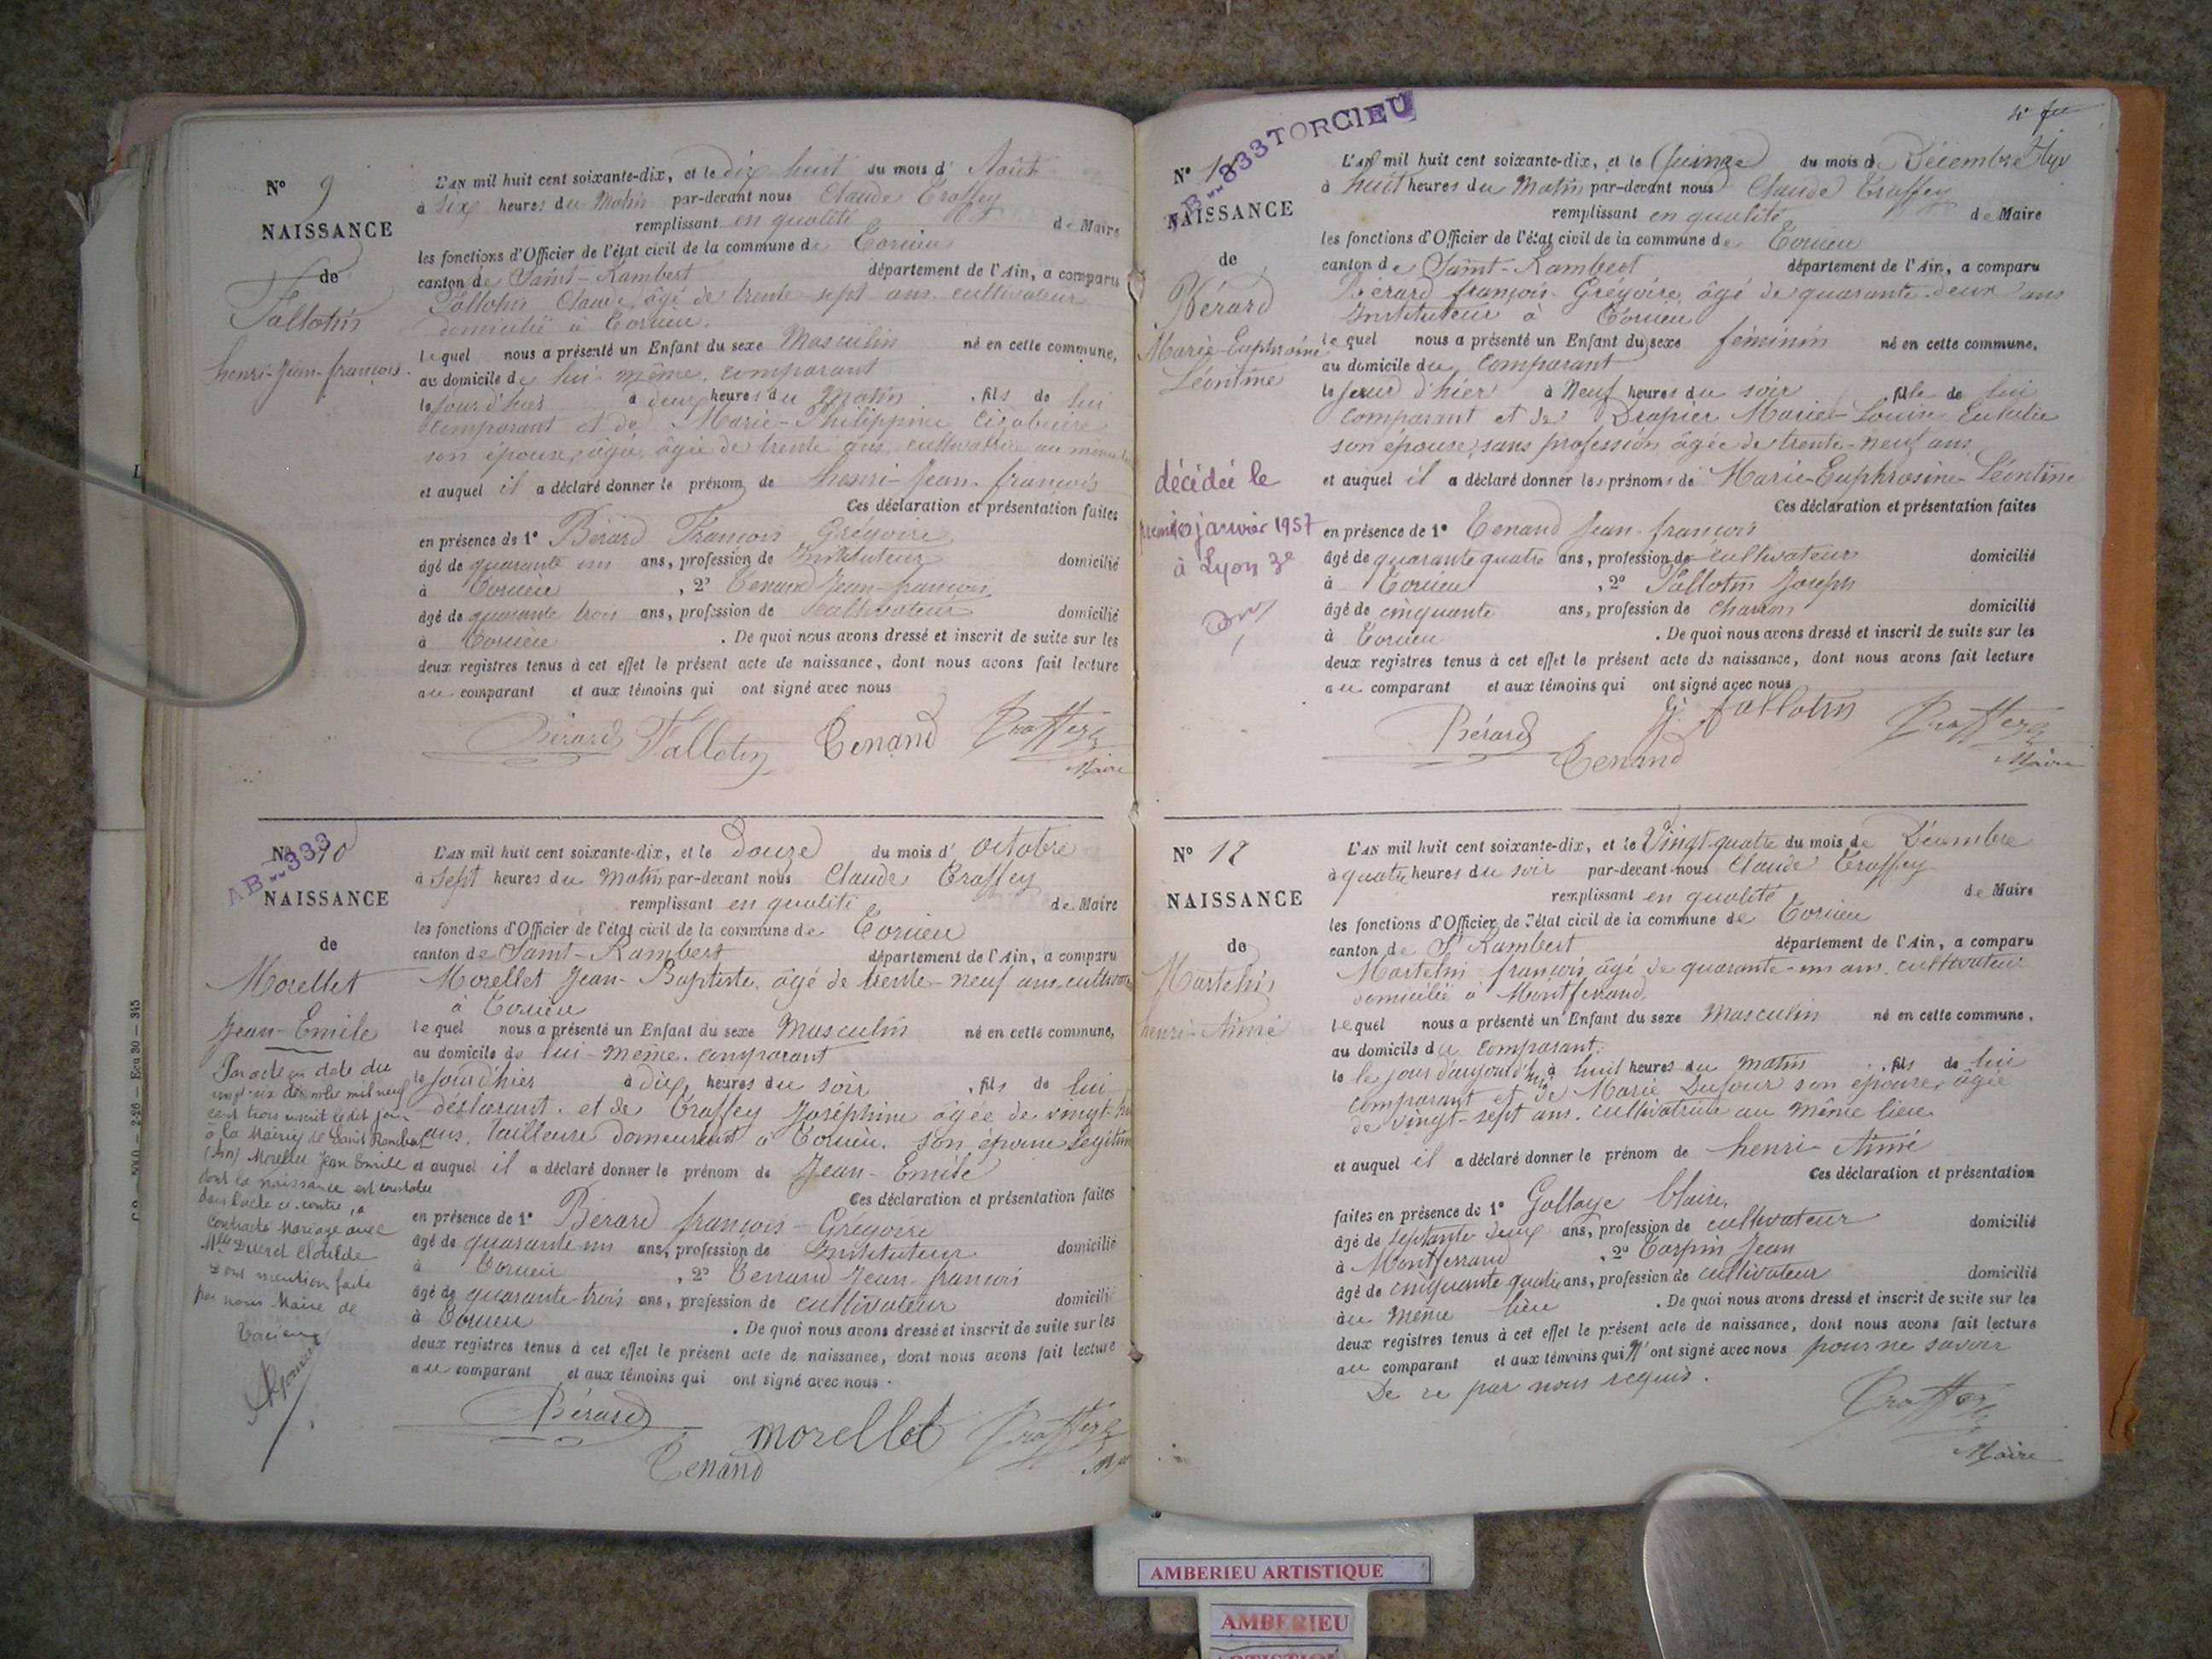 N° 9
NAISSANCE
de
Tallotin
henri-Jean-françois.
L'AN mil huit cent soixante-dix, et le dix huit du mois d' Août
à six heures du Matin par-devant nous Claude Traffey
remplissant en qualité de Maire
les fonctions d'Officier de l'état civil de la commune de Torcieu
canton de Saint-Rambert département de l'Ain, a comparu
Tallotin Claude, âgé de trente-sept ans cultivateur
domicilié à Torcieu.
lequel nous a présenté un Enfant du sexe Masculin né en cette commune,
au domicile de lui-même, comparant
le jour d'hier à deux heures du Matin , fils de lui
comparant et de Marie-Philippine
son épouse, âgée, âgée de trente ans, cultivatrice au même
et auquel il a déclaré donner le prénom de henri-Jean-françois
Ces déclaration et présentation faites
en présence de 1° Bérard François Grégoire
âgé de quarante un ans, profession de Instituteur domicilié
à Torcieu , 2° Tenand Jean-françois
âgé de quarante trois ans, profession de cultivateur domicilié
à Torcieu . De quoi nous avons dressé et inscrit de suite sur les
deux registres tenus à cet effet le présent acte de naissance, dont nous avons fait lecture
au comparant et aux témoins qui ont signé avec nous
Bérard Tallotin Tenand Traffey
Maire
AB--333
N° 10
NAISSANCE
de
Morellet
Jean-Emile
Par acte en date du
vingt-six décembre mil neuf
cent trois inscrit ledit jour
à la Mairie de Saint Rambert
(Ain) Morellet Jean Emile
dont la naissance est constatée
dans l'acte ci-contre, a
contracté mariage avec
Mlle Clotilde
Dont mention faite
par nous Maire de
Torcieu
L'AN mil huit cent soixante-dix, et le Douze du mois d' octobre
à sept heures du Matin par-devant nous Claude Traffey
remplissant en qualité de Maire
les fonctions d'Officier de l'état civil de la commune de Torcieu
canton de Saint-Rambert département de l'Ain, a comparu
Morellet Jean-Baptiste, âgé de trente-neuf ans,
à Torcieu
lequel nous a présenté un Enfant du sexe Masculin né en cette commune,
au domicile de lui-même, comparant
le jour d'hier à dix heures du soir , fils de lui
déclarant, et de Traffey Joséphine âgée de vingt-
ans, tailleuse demeurant à Torcieu, son épouse Légitime
et auquel il a déclaré donner le prénom de Jean-Emile
Ces déclaration et présentation faites
en présence de 1° Bérard françois-Grégoire
âgé de quarante-un ans, profession de Instituteur domicilié
à Torcieu , 2° Tenand Jean-françois
âgé de quarante-trois ans, profession de cultivateur domicilié
à Torcieu . De quoi nous avons dressé et inscrit de suite sur les
deux registres tenus à cet effet le présent acte de naissance, dont nous avons fait lecture
au comparant et aux témoins qui ont signé avec nous.
Bérard morellet Traffey
Tenand
AB--333 TORCIEU
N°
NAISSANCE
de
Bérard
Marie-Euphrosine
Léontine
décédée le
premier janvier 1957
à Lyon 3e
L'AN mil huit cent soixante-dix, et le Quinze du mois de Décembre
à huit heures du Matin par-devant nous Claude Traffey
remplissant en qualité de Maire
les fonctions d'Officier de l'état civil de la commune de Torcieu
canton de Saint-Rambert département de l'Ain, a comparu
Bérard françois-Grégoire, âgé de quarante-deux ans
Instituteur à Torcieu
lequel nous a présenté un Enfant du sexe féminin né en cette commune,
au domicile du comparant
le jour d'hier à Neuf heures du soir , fille de lui
comparant et de Drapier Marie-Louise Eulalie
son épouse, sans profession âgée de trente-neuf ans
et auquel il a déclaré donner les prénoms de Marie-Euphrosine-Léontine
Ces déclaration et présentation faites
en présence de 1° Tenand Jean-françois
âgé de quarante quatre ans, profession de cultivateur domicilié
à Torcieu , 2° Tallotin Joseph
âgé de cinquante ans, profession de charron domicilié
à Torcieu . De quoi nous avons dressé et inscrit de suite sur les
deux registres tenus à cet effet le présent acte de naissance, dont nous avons fait lecture
au comparant et aux témoins qui ont signé avec nous
Bérard J. Tallotin Traffey
Tenand Maire
N° 12
NAISSANCE
de
Martelin
henri-Aimé
L'AN mil huit cent soixante-dix, et le Vingt-quatre du mois de Décembre
à quatre heures du soir par-devant nous Claude Traffey
remplissant en qualité de Maire
les fonctions d'Officier de l'état civil de la commune de Torcieu
canton de St Rambert département de l'Ain, a comparu
Martelin françois, âgé de quarante-un ans, cultivateur
domicilié à Montferrand.
lequel nous a présenté un Enfant du sexe Masculin né en cette commune,
au domicile du comparant.
le le jour d'aujourd'hui à huit heures du matin , fils de lui
comparant et de Marie Dufour son épouse, âgée
de vingt-sept ans, cultivatrice au même lieu
et auquel il a déclaré donner le prénom de henri-Aimé
Ces déclaration et présentation
faites en présence de 1° Gollaye Claire,
âgé de septante deux ans, profession de cultivateur domicilié
à Montferrand , 2° Carpin Jean
âgé de cinquante quatre ans, profession de cultivateur domicilié
au même lieu . De quoi nous avons dressé et inscrit de suite sur les
deux registres tenus à cet effet le présent acte de naissance, dont nous avons fait lecture
au comparant et aux témoins qui n'ont signé avec nous pour ne savoir
De ce par nous requis.
Traffey
Maire
AMBERIEU ARTISTIQUE
AMBERIEU
ARTISTIQUE